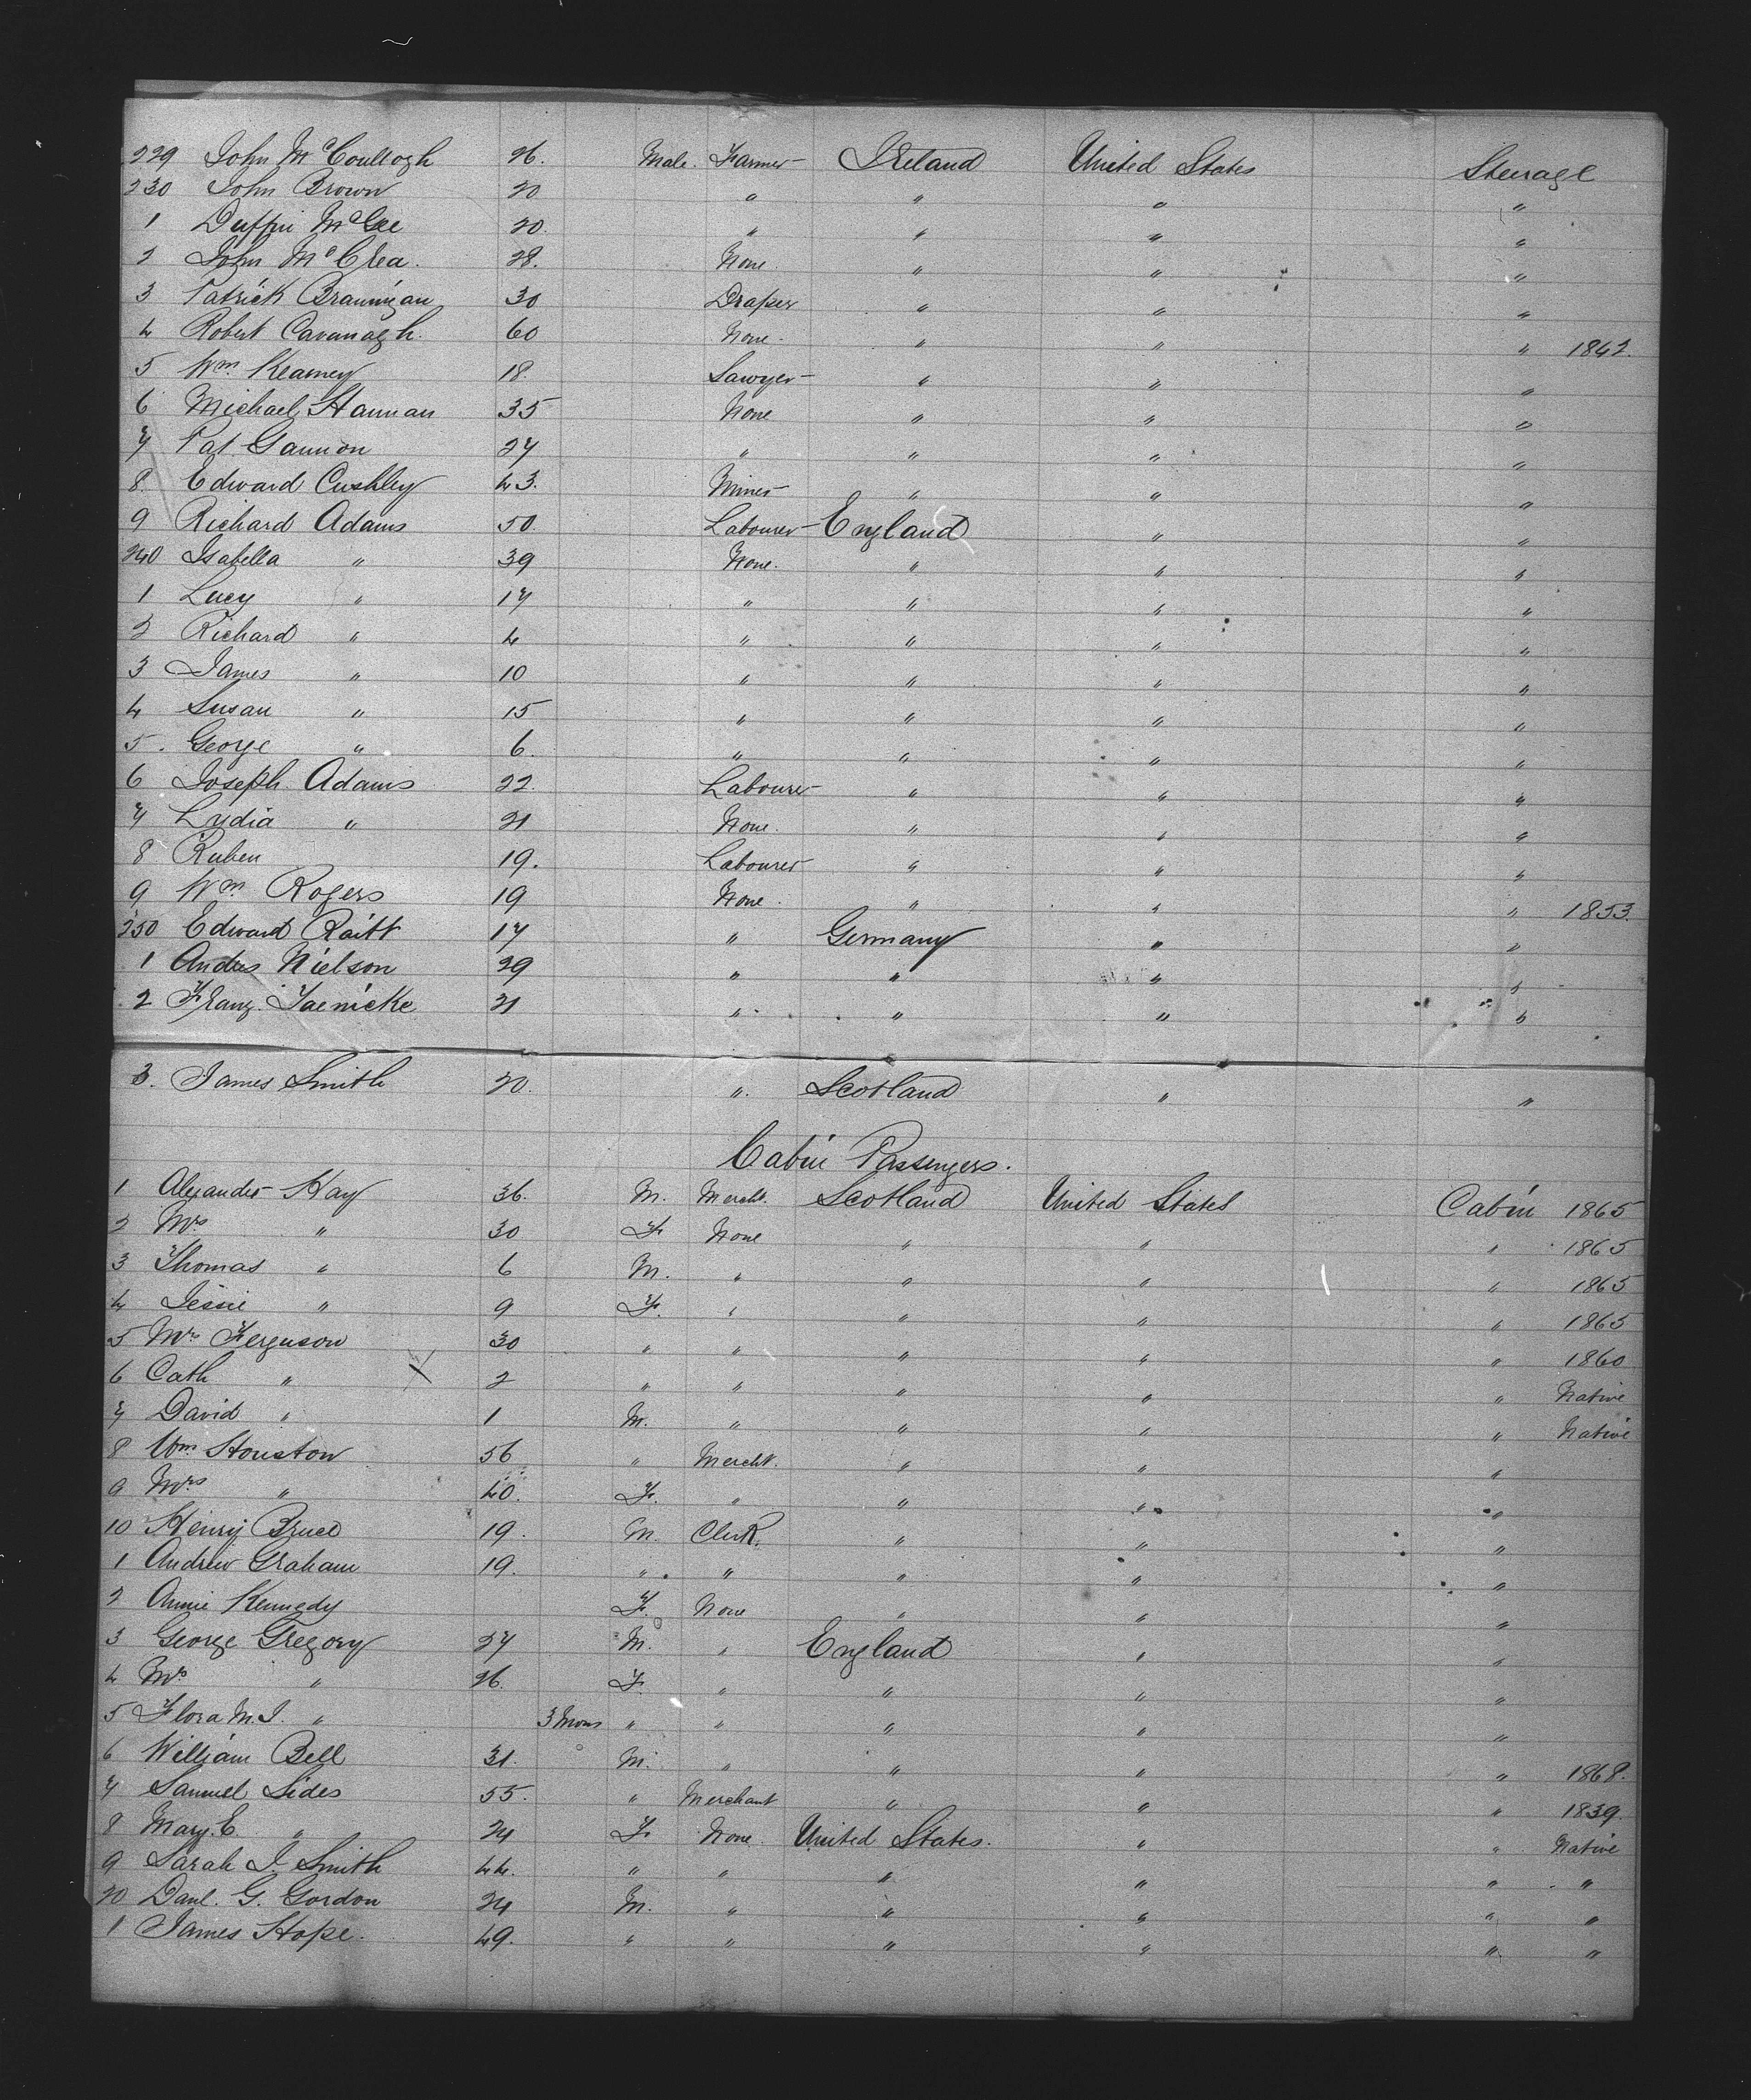 229 John McCoullogh 26. Male. Farmer Ireland United States Steerage
230 John Brown 20 " " " "
1 Duffin McGee 20. " " " "
2 John McCrea. 28. None. " " "
3 Patrick Brannigan 30 Draper " " "
4 Robert Cavanagh. 60 None. " " " 1842.
5 Wm. Kearney 18. Sawyer " " "
6 Michael Hannan 35 None " " "
7 Pat Gannon 27 " " " "
8. Edward Cushley 43. Miner " " "
9 Richard Adams 50. Labourer England " "
240 Isabella " 39 None. " " "
1 Lucy " 17 " " " "
2 Richard " 4 " " " "
3 James " 10 " " " "
4 Susan " 15 " " " "
5. George " 6. " " " "
6 Joseph Adams 22. Labourer " " "
7 Lydia " 21 None. " " "
8 Ruben 19. Labourer " " "
9 Wm Rogers 19 None. " " " 1853.
250 Edward Raitt 17 " Germany " "
1 Andres Nielson 29 " " " "
2 Franz. Jaenicke 21 " " " "
3. James Smith 20. ". Scotland " "
Cabin Passengers.
1 Alexander Hay 36. M. Mercht. Scotland United States Cabin 1865
2 Mrs " 30 F. None " " " 1865
3 Thomas " 6 M. " " " " 1865
4 Jessie " 9 F. " " " " 1865
5 Mrs Ferguson 30 " " " " " 1860
6 Cath " 2 " " " " " Native
7 David " 1 M. " " " " Native
8 Wm. Houston 56 " Mercht. " " "
9 Mrs " 40. F. " " " "
10 Henry Bruce 19. M. Clerk. " " "
1 Andrew Graham 19. " " " " "
2 Annie Kennedy F. None " " "
3 George Gregory 27 M. " England " "
4 Mrs " 26. F. " " " "
5 Flora M. J. " 3 Mons " " " " "
6 William Bell 31. M. " " " " 1868.
7 Samuel Sides 55. " Merchant " " " 1839.
8 Mary. E. " 24 F. None. United States. " " Native
9 Sarah J. Smith 44. " " " " " "
20 Danl. G. Gordon 24 M. " " " " "
1 James Hope. 49. " " " " " "